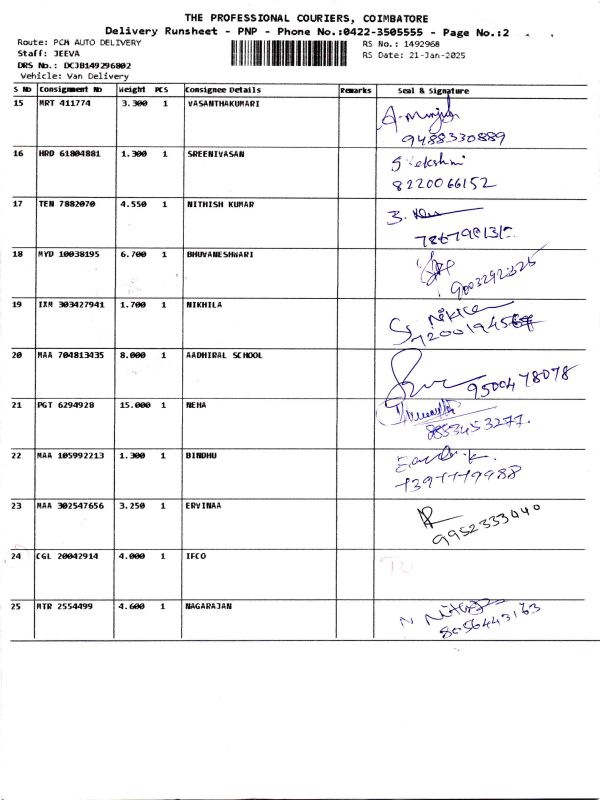 THE PROFESSIONAL COURIERS, COIMBATORE
Delivery Runsheet - PNP - Phone No.:0422-3505555 - Page No.:2
Route: PCM AUTO DELIVERY
RS No.: 1492968
Staff: JEEVA
RS Date: 21-Jan-2025
DRS No.: DCJB149296802
Vehicle: Van Delivery
S No Consignment No Weight PCS Consignee Details Remarks Seal & Signature
15 MRT 411774 3.300 1 VASANTHAKUMARI
9488330889
16 HRD 61804881 1.300 1 SREENIVASAN
8220066152
17 TEN 7882070 4.550 1 NITHISH KUMAR
18 MYD 10038195 6.700 1 BHUVANESHWARI
19 IXM 303427941 1.700 1 NIKHILA
20 MAA 704813435 8.000 1 AADHIRAL SCHOOL
9500478078
21 PGT 6294928 15.000 1 NEHA
8553453277.
22 MAA 105992213 1.300 1 BINDHU
23 MAA 302547656 3.250 1 ERVINAA
9952333040
24 CGL 20042914 4.000 1 IFCO
25 MTR 2554499 4.600 1 NAGARAJAN
8056443163